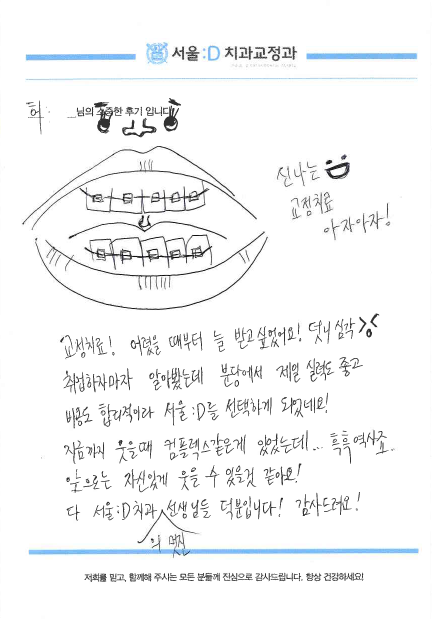 서울:D 치과교정과
허: 님의 소중한 후기 입니다
신나는
교정치료
아자아자!
교정치료! 어렸을 때부터 늘 받고싶었어요! 덧니 심각
취업하자마자 알아봤는데 분당에서 제일 실력도 좋고
비용도 합리적이라 서울:D를 선택하게 되었네요!
지금까지 웃을때 컴플렉스같은게 있었는데...흑흑
앞으로는 자신있게 웃을 수 있을것 같아요!
다 서울:D치과 의 멋진 선생님들 덕분입니다! 감사드려요!
저희를 믿고, 함께해 주시는 모든 분들께 진심으로 감사드립니다. 항상 건강하세요!